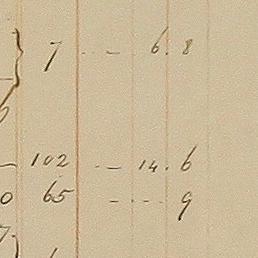 7 .. — 6.8
102 .. — 14.6
65 - ... 9